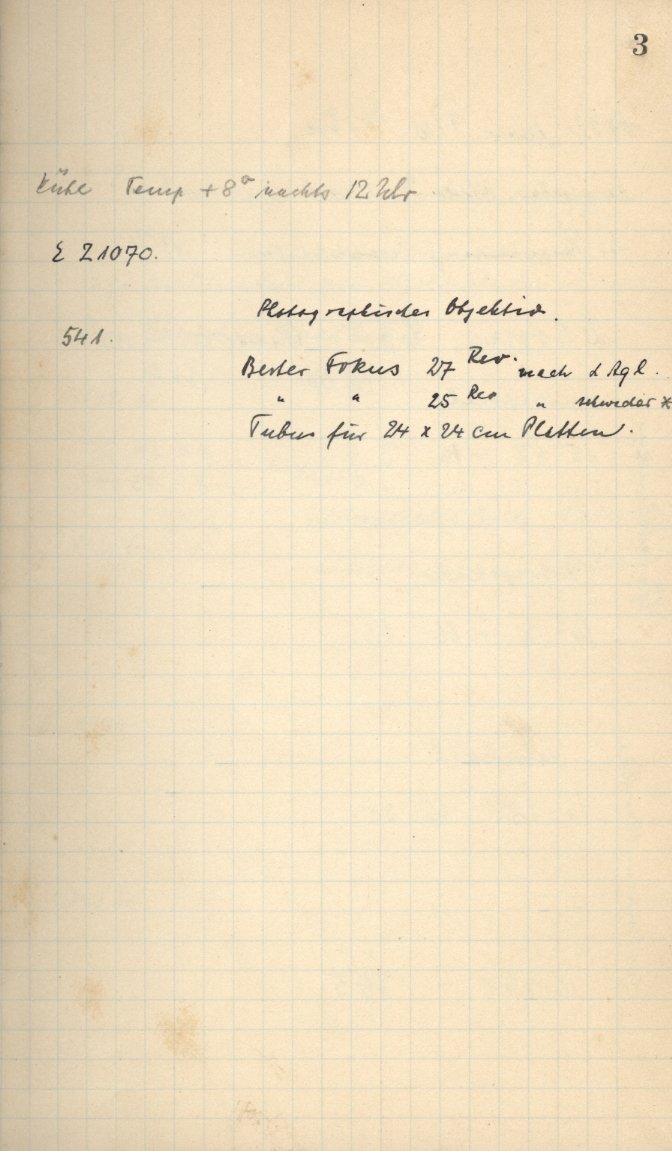 3
Kühl Temp + 8° nachts 12 Uhr
Σ Z 1070.
Photographisches Objektiv.
541.
Bester Fokus 27 Rev. nach d
" " 25 Rev " schwacher *
Tubus für 24 x 24 cm Platten.